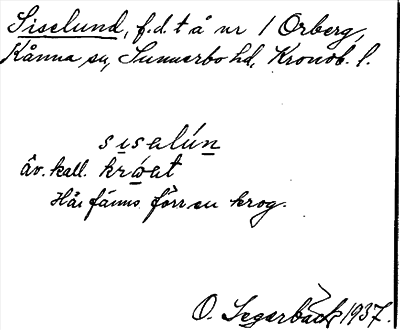 Siselund, f.d. t å nr 1 Örberg,
Kånna sn, Sunnerbo hd, Kronob. l.
sisalún
äv. kall. króat
Här fanns förr en krog.
O. Segerbäck 1937.